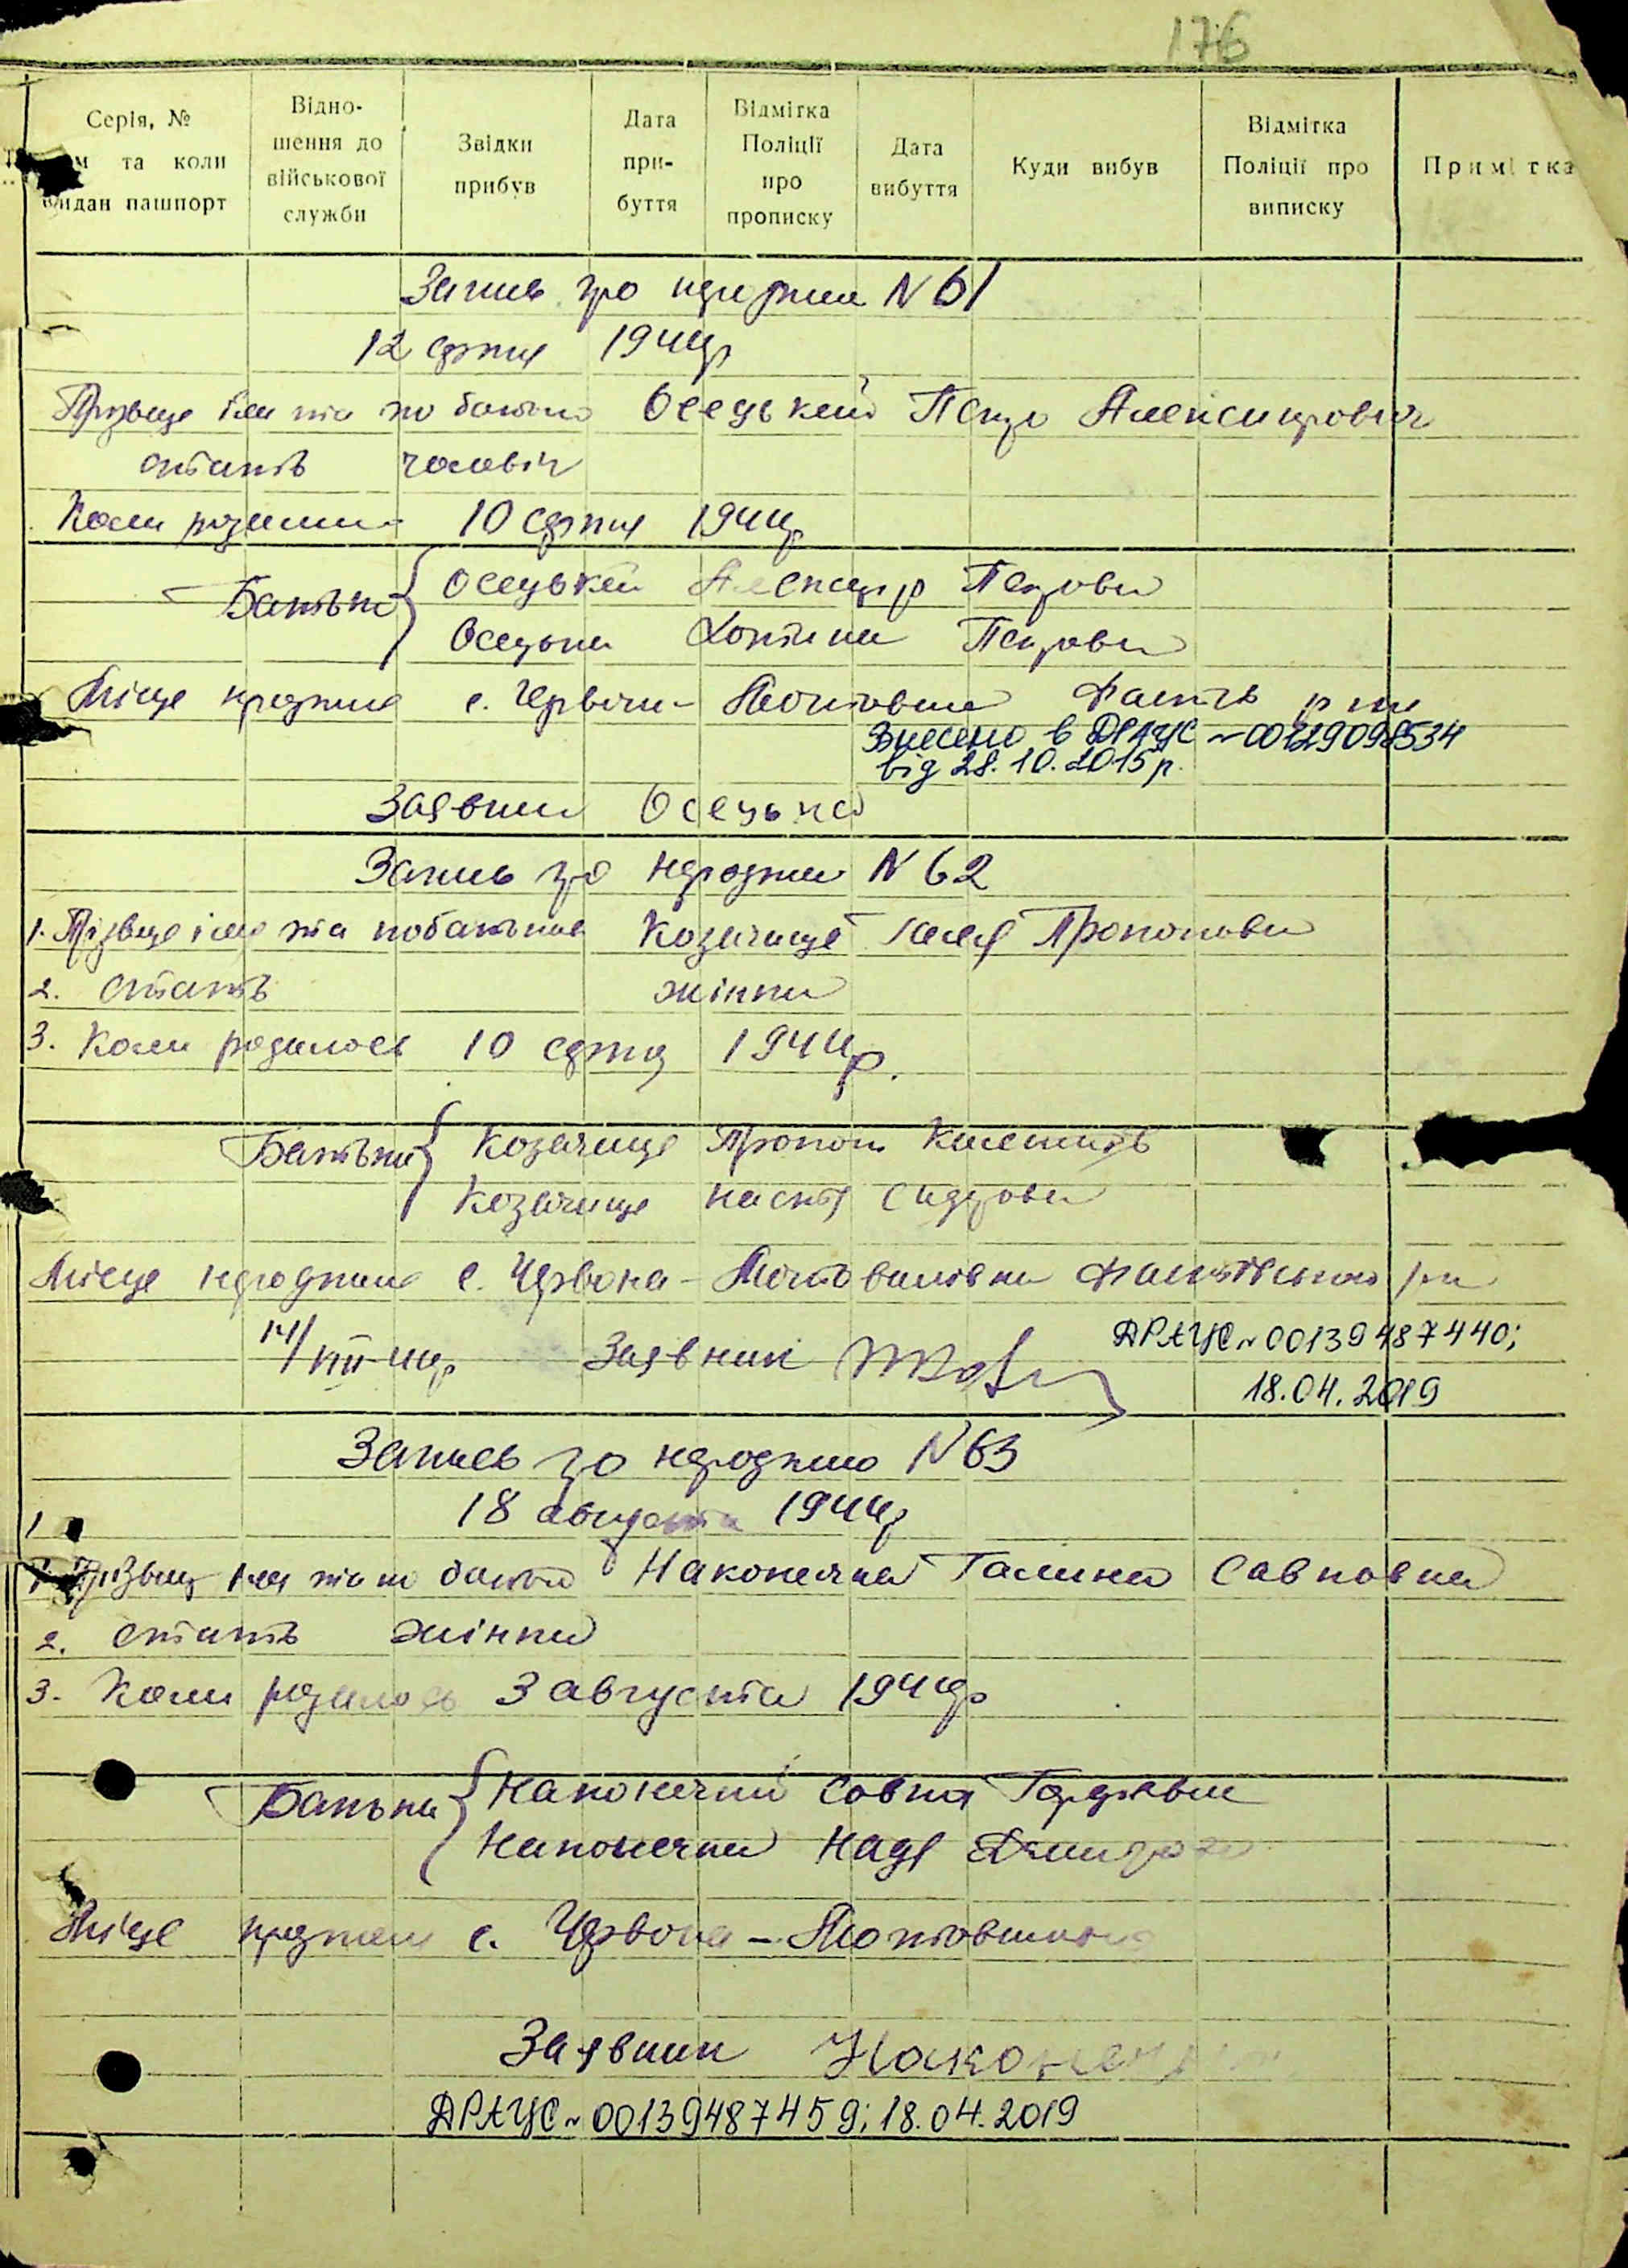 176
Серія, №
та коли
видан пашпорт
Відно-
шення до
військової
служби
Звідки
прибув
Дата
при-
буття
Відмітка
Поліції
про
прописку
Дата
вибуття
Куди вибув
Відмітка
Поліції про
виписку
Примітка
Запись про народжен N 61
12 серпня 1944р
Прізвище імя та по батькю Осецький Петро Александрович
стать чоловіч
Коли родили- 10 серпня 1944р
Батьки Осецький Александр Петрови
Осецька Петрови
Місце народжня с. Червон- Мотовил Фастів р-ну
Внесено в ДРАЦС ~ 00129098534
від 28.10.2015р.
Заявник Осецька
Запись про народжен N 62
1. Прізвище імя та побатькові Козачище Прокоповн
2. стать жінка
3. Коли родилось 10 серпня 1944р.
Батьки Козачище Прокоп
Козачище Настя Сидоровн
Місце народжня с. Червона - Мотовилівка Фастівського р-н
14/VIII-44р Заявник
ДРАЦС ~ 00139487440;
18.04.2019
Запись про народжню N 63
18 августа 1944р
1
1. Прізвищ імя та по батьк Наконечна Галина Савковна
2. стать жінка
3. Коли родилось 3 августа 1944р
Батьки Наконечний Савка Гордієвич
Наконечна Надя
Місце народжен с. Червона - Мотовилівка
Заявник Наконечн
ДРАЦС ~ 00139487459; 18.04.2019